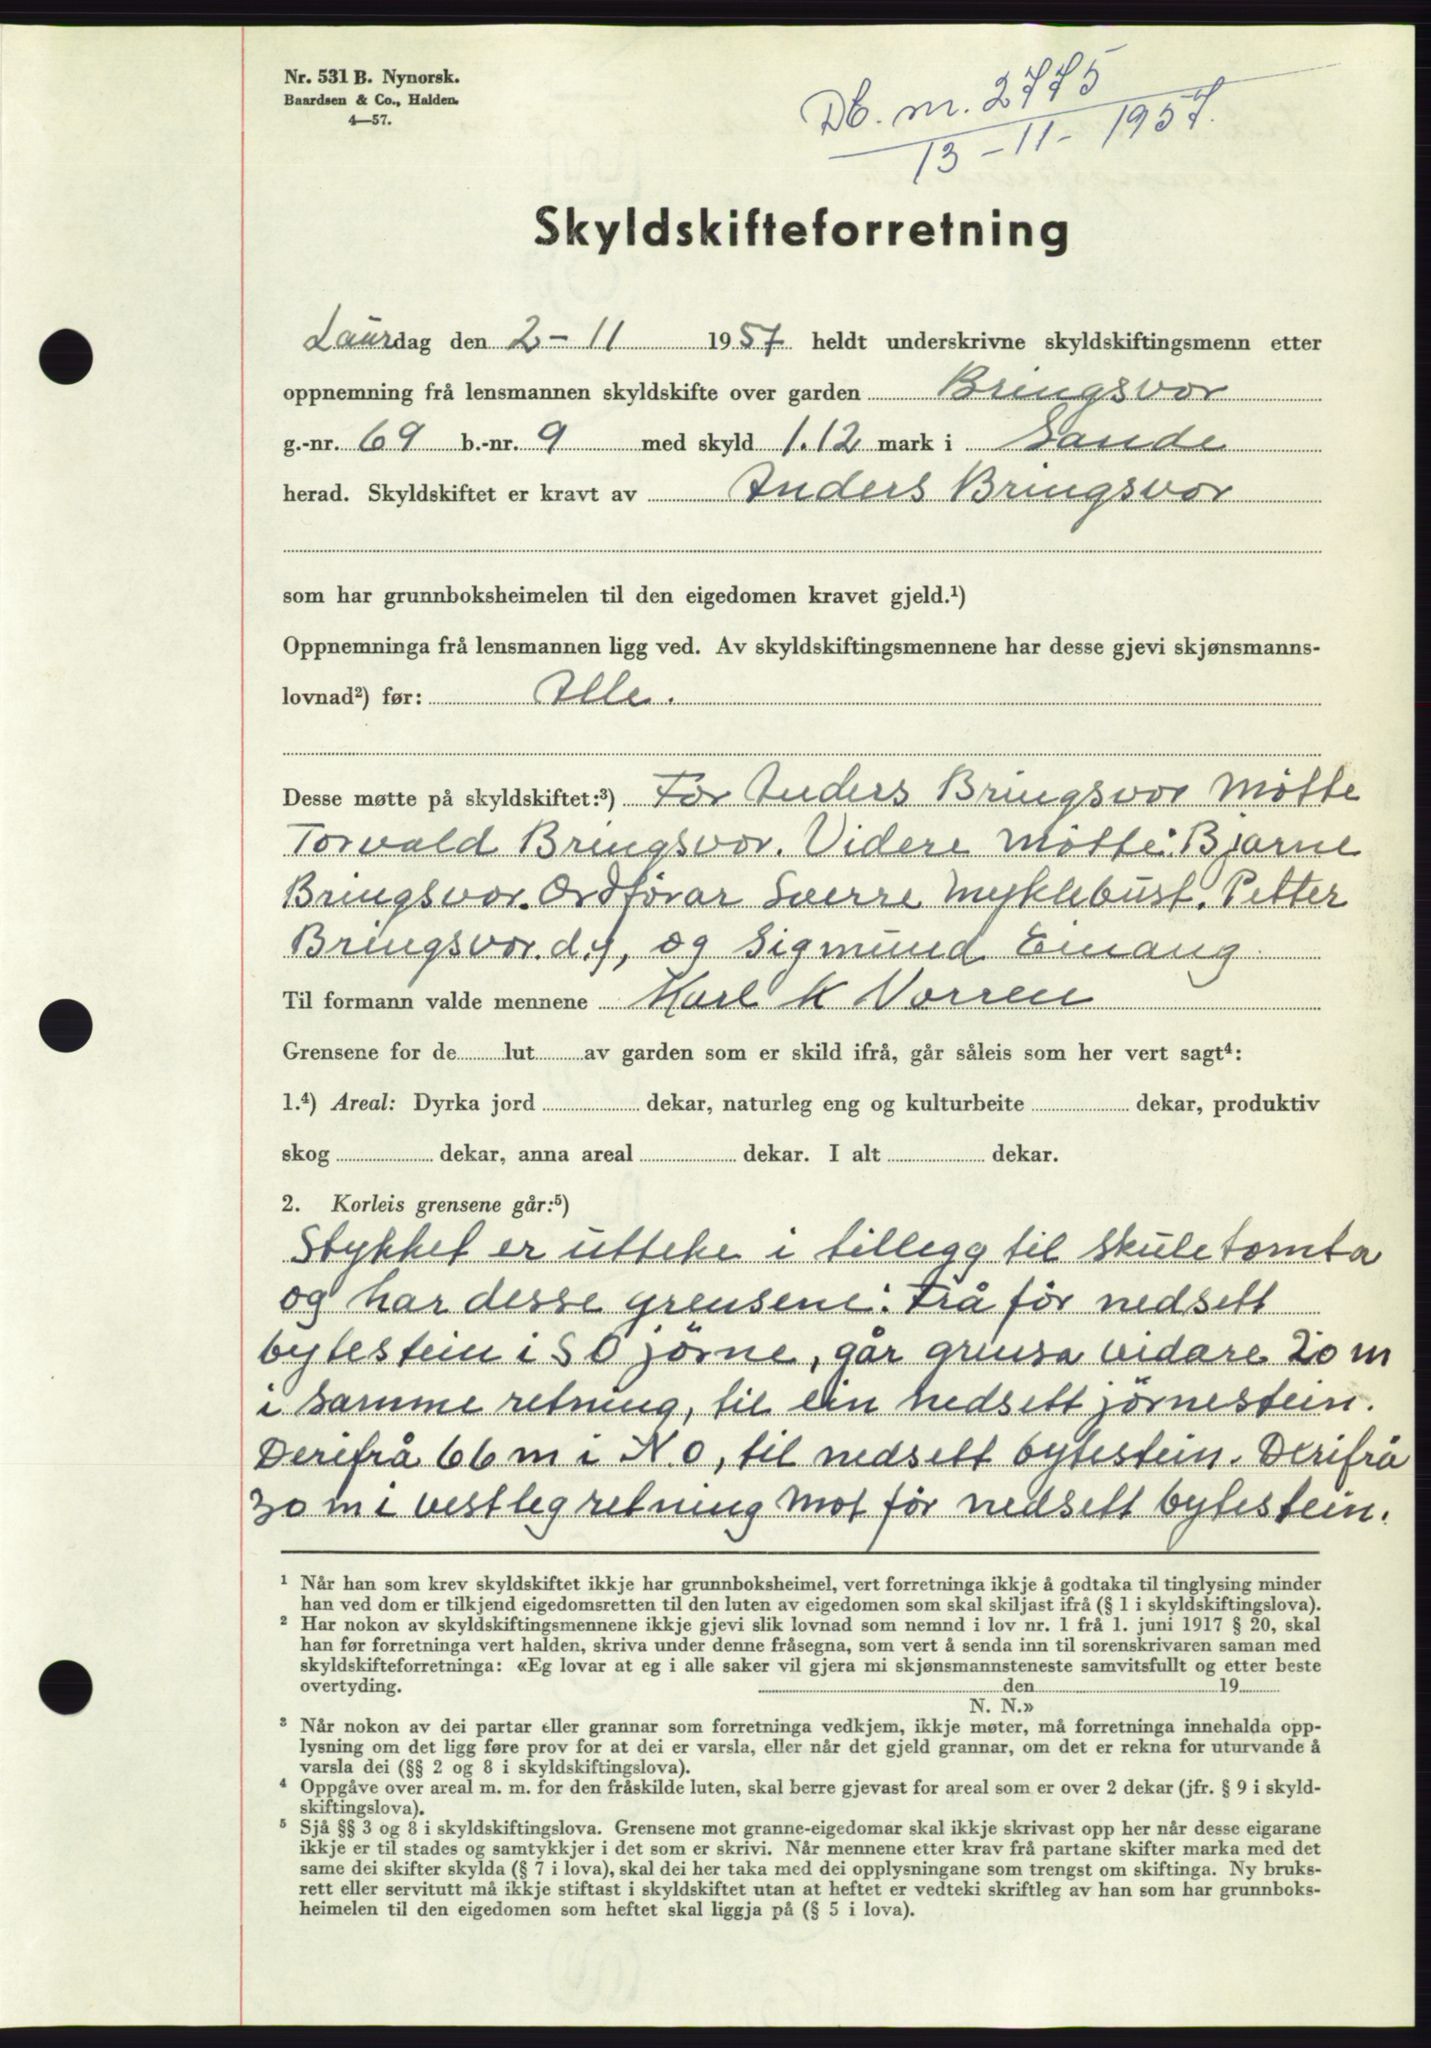 Nr. 531 B. Nynorsk.
Baardsen & Co., Halden.
4—57.
Db. nr. 2775
13-11-1957.
Skyldskifteforretning
Laurdag den 2-11 1957 heldt underskrivne skyldskiftingsmenn etter
oppnemning frå lensmannen skyldskifte over garden Bringsvor
g.-nr. 69 b.-nr. 9 med skyld 1.12 mark i Sande
herad. Skyldskiftet er kravt av Anders Bringsvor
som har grunnboksheimelen til den eigedomen kravet gjeld.¹)
Oppnemninga frå lensmannen ligg ved. Av skyldskiftingsmennene har desse gjevi skjønsmanns-
lovnad²) før: Alle.
Desse møtte på skyldskiftet:³) For Anders Bringsvor Møtte
Torvald Bringsvor. Videre møtte: Bjarne
Bringsvor. Ordførar Sverre Myklebust. Petter
Bringsvor. d.y, og Sigmund Einang.
Til formann valde mennene Karl K Vorren
Grensene for de lut av garden som er skild ifrå, går såleis som her vert sagt⁴:
1.⁴) Areal: Dyrka jord dekar, naturleg eng og kulturbeite dekar, produktiv
skog dekar, anna areal dekar. I alt dekar.
2. Korleis grensene går:⁵)
Stykket er utteke i tillegg til skuletomta
og har desse grensene: Frå før nedsett
bytestein i S O jörne, går grensa vidare 20 m
i samme retning, til ein nedsett jörnestein.
Derifrå 66 m i N.O, til nedsett bytestein. Derifrå
30 m i vestleg retning mot før nedsett bytestein.
¹ Når han som krev skyldskiftet ikkje har grunnboksheimel, vert forretninga ikkje å godtaka til tinglysing minder
han ved dom er tilkjend eigedomsretten til den luten av eigedomen som skal skiljast ifrå (§ 1 i skyldskiftingslova).
² Har nokon av skyldskiftingsmennene ikkje gjevi slik lovnad som nemnd i lov nr. 1 frå 1. juni 1917 § 20, skal
han før forretninga vert halden, skriva under denne fråsegna, som vert å senda inn til sorenskrivaren saman med
skyldskifteforretninga: «Eg lovar at eg i alle saker vil gjera mi skjønsmannsteneste samvitsfullt og etter beste
overtyding. den 19
N. N.»
³ Når nokon av dei partar eller grannar som forretninga vedkjem, ikkje møter, må forretninga innehalda opp-
lysning om det ligg føre prov for at dei er varsla, eller når det gjeld grannar, om det er rekna for uturvande å
varsla dei (§§ 2 og 8 i skyldskiftingslova).
⁴ Oppgåve over areal m. m. for den fråskilde luten, skal berre gjevast for areal som er over 2 dekar (jfr. § 9 i skyld-
skiftingslova).
⁵ Sjå §§ 3 og 8 i skyldskiftingslova. Grensene mot granne-eigedomar skal ikkje skrivast opp her når desse eigarane
ikkje er til stades og samtykkjer i det som er skrivi. Når mennene etter krav frå partane skifter marka med det
same dei skifter skylda (§ 7 i lova), skal dei her taka med dei opplysningane som trengst om skiftinga. Ny bruks-
rett eller servitutt må ikkje stiftast i skyldskiftet utan at heftet er vedteki skriftleg av han som har grunnboks-
heimelen til den eigedomen som heftet skal liggja på (§ 5 i lova).